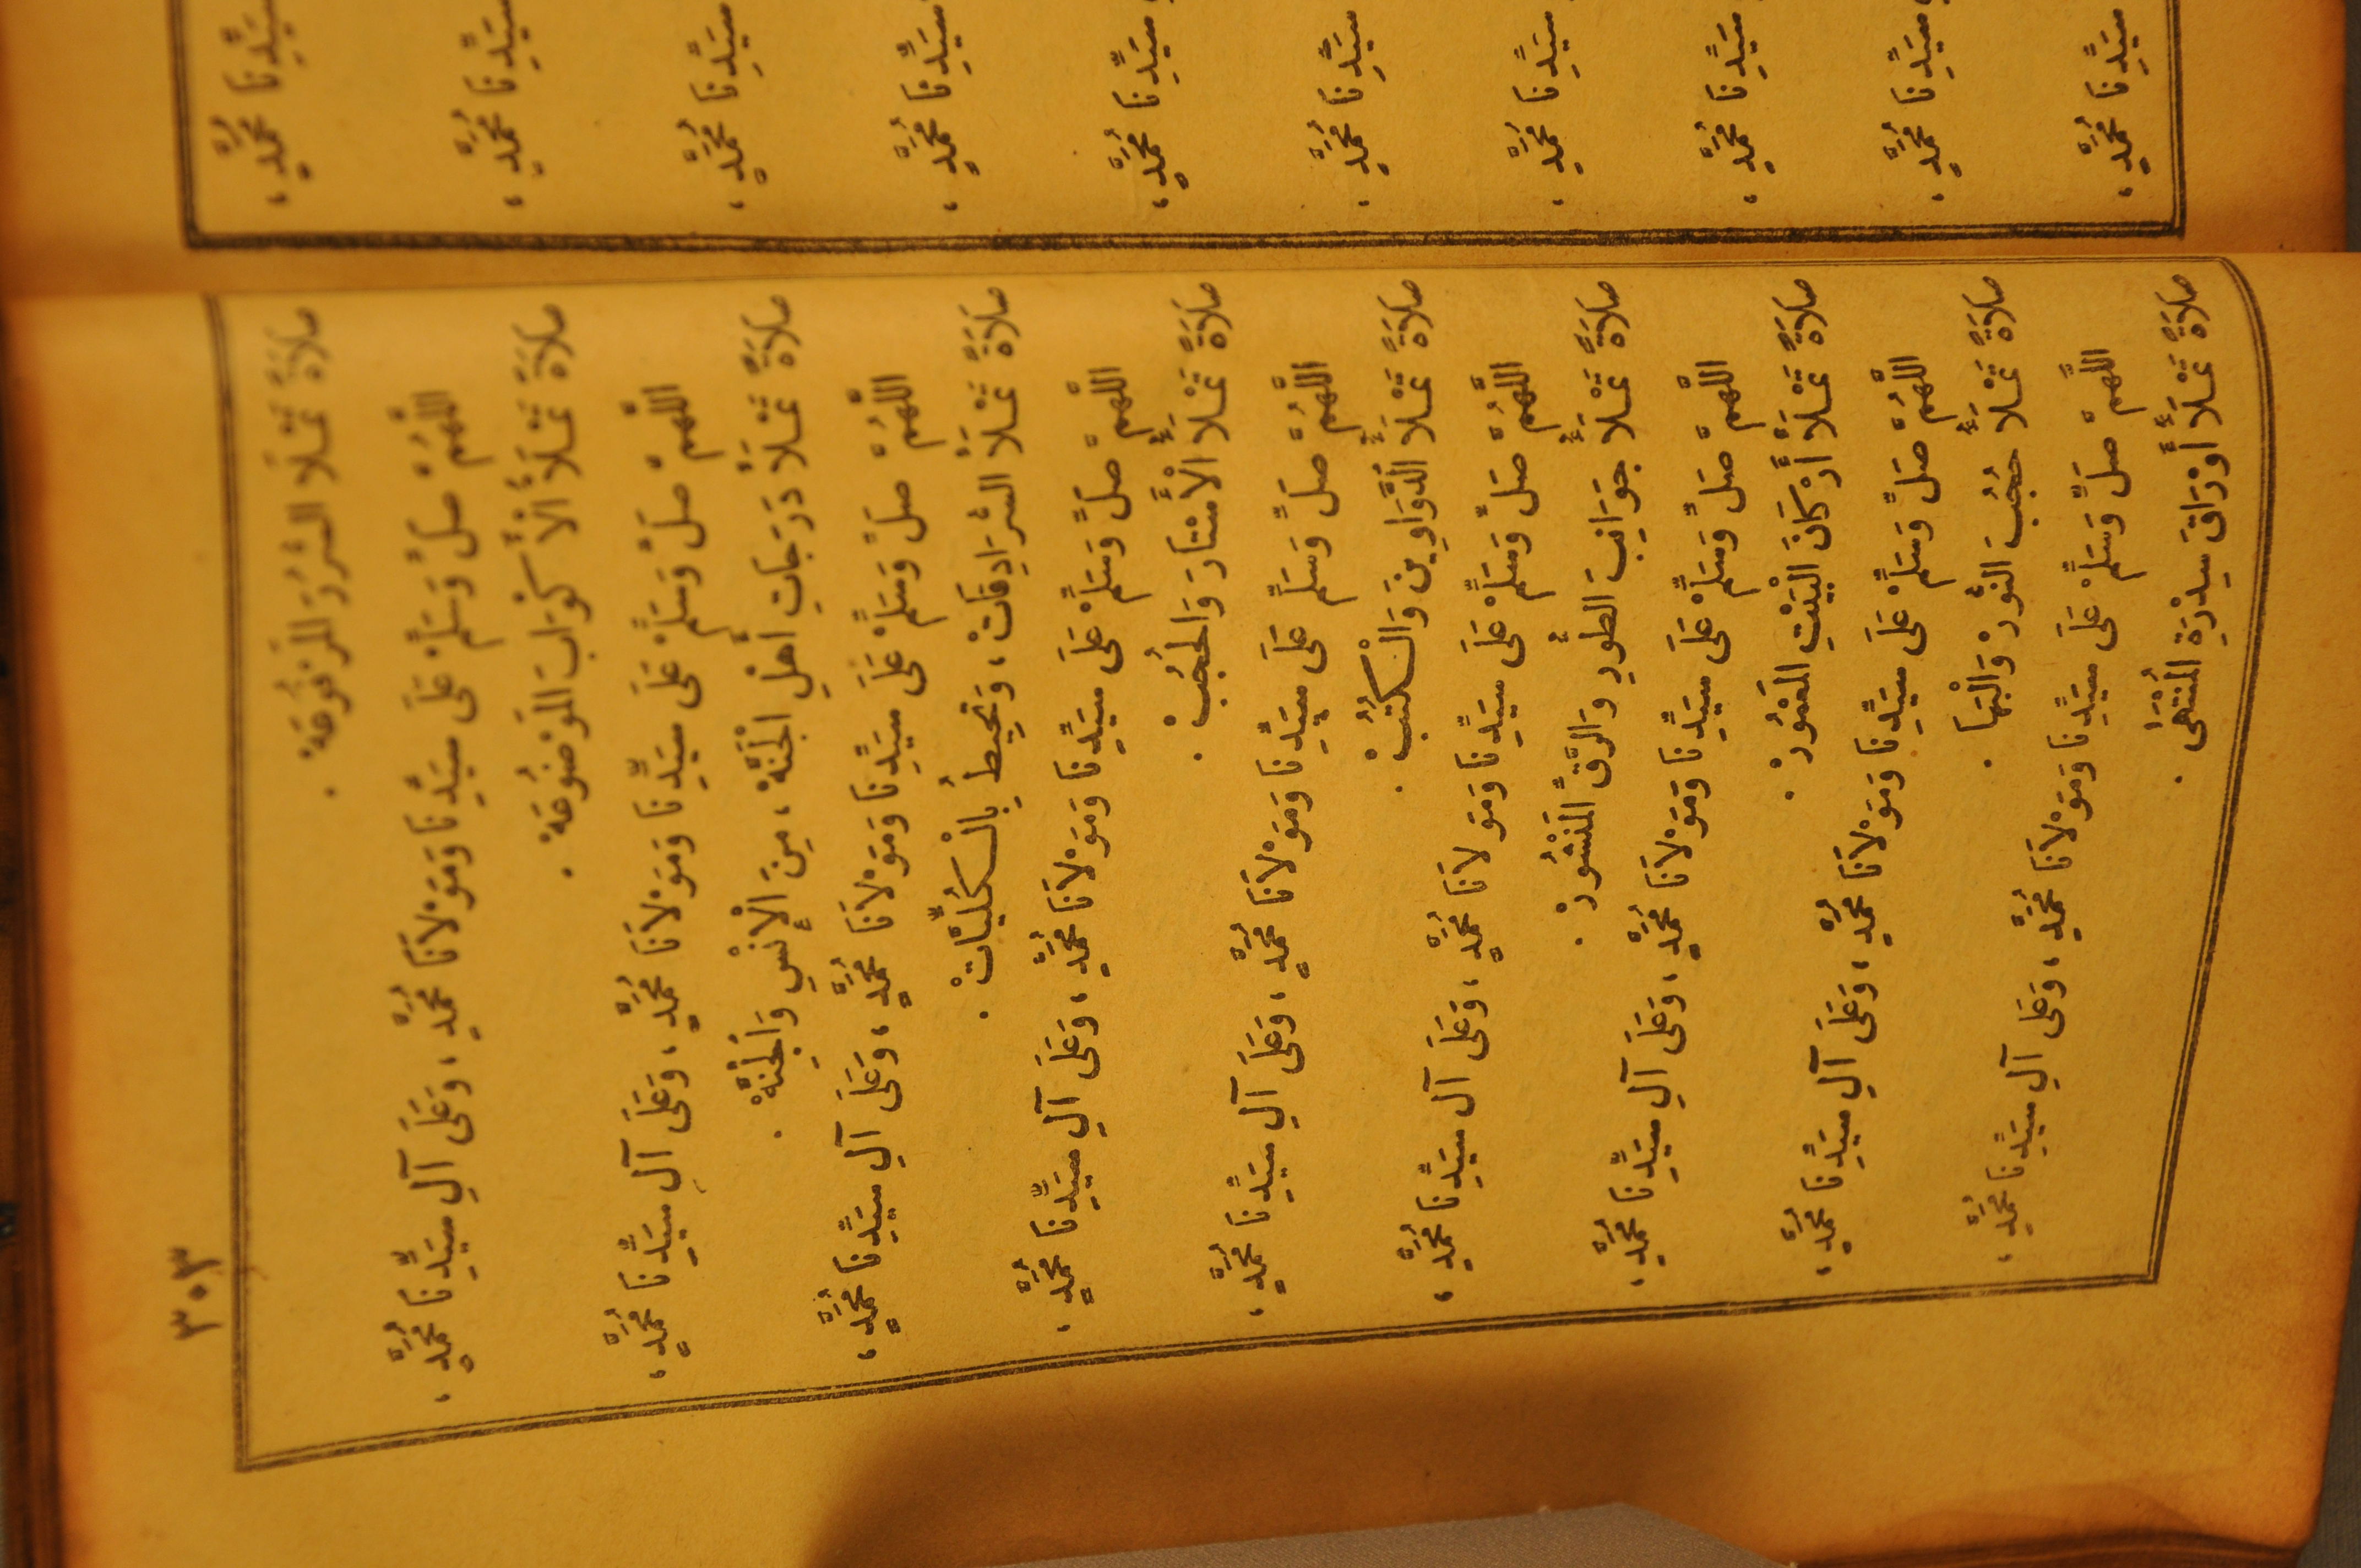 ٣٠٣
صَلَاةً تَمْلَأُ السُّرُرَ الْمَرْفُوعَهْ .
اللَّهُمَّ صَلِّ وَسَلِّمْ عَلَى سَيِّدِنَا وَمَوْلَانَا مُحَمَّدٍ، وَعَلَى آلِ سَيِّدِنَا مُحَمَّدٍ،
صَلَاةً تَمْلَأُ الْأَكْوَابَ الْمَوْضُوعَهْ .
اللَّهُمَّ صَلِّ وَسَلِّمْ عَلَى سَيِّدِنَا وَمَوْلَانَا مُحَمَّدٍ، وَعَلَى آلِ سَيِّدِنَا مُحَمَّدٍ،
صَلَاةً تَمْلَأُ دَرَجَاتِ أَهْلِ الْجَنَّهْ، مِنَ الْإِنْسِ وَالْجِنَّهْ .
اللَّهُمَّ صَلِّ وَسَلِّمْ عَلَى سَيِّدِنَا وَمَوْلَانَا مُحَمَّدٍ، وَعَلَى آلِ سَيِّدِنَا مُحَمَّدٍ،
صَلَاةً تَمْلَأُ السُّرَادِقَاتْ، وَتُحِيطُ بِالْكُلِّيَّاتْ .
اللَّهُمَّ صَلِّ وَسَلِّمْ عَلَى سَيِّدِنَا وَمَوْلَانَا مُحَمَّدٍ، وَعَلَى آلِ سَيِّدِنَا مُحَمَّدٍ،
صَلَاةً تَمْلَأُ الْأَسْتَارَ وَالْحُجُبْ .
اللَّهُمَّ صَلِّ وَسَلِّمْ عَلَى سَيِّدِنَا وَمَوْلَانَا مُحَمَّدٍ، وَعَلَى آلِ سَيِّدِنَا مُحَمَّدٍ،
صَلَاةً تَمْلَأُ الدَّوَاوِينَ وَالْكُتُبْ .
اللَّهُمَّ صَلِّ وَسَلِّمْ عَلَى سَيِّدِنَا وَمَوْلَانَا مُحَمَّدٍ، وَعَلَى آلِ سَيِّدِنَا مُحَمَّدٍ،
صَلَاةً تَمْلَأُ جَوَانِبَ الطُّورِ وَالرَّقِّ الْمَنْشُورْ .
اللَّهُمَّ صَلِّ وَسَلِّمْ عَلَى سَيِّدِنَا وَمَوْلَانَا مُحَمَّدٍ، وَعَلَى آلِ سَيِّدِنَا مُحَمَّدٍ،
صَلَاةً تَمْلَأُ أَرْكَانَ الْبَيْتِ الْمَعْمُورْ .
اللَّهُمَّ صَلِّ وَسَلِّمْ عَلَى سَيِّدِنَا وَمَوْلَانَا مُحَمَّدٍ، وَعَلَى آلِ سَيِّدِنَا مُحَمَّدٍ،
صَلَاةً تَمْلَأُ حُجُبَ النُّورْ وَالْبَهَا .
اللَّهُمَّ صَلِّ وَسَلِّمْ عَلَى سَيِّدِنَا وَمَوْلَانَا مُحَمَّدٍ، وَعَلَى آلِ سَيِّدِنَا مُحَمَّدٍ،
صَلَاةً تَمْلَأُ أَوْرَاقَ سِدْرَةِ الْمُنْتَهَى .
سَيِّدِنَا مُحَمَّدٍ،
سَيِّدِنَا مُحَمَّدٍ،
سَيِّدِنَا مُحَمَّدٍ،
سَيِّدِنَا مُحَمَّدٍ،
سَيِّدِنَا مُحَمَّدٍ،
سَيِّدِنَا مُحَمَّدٍ،
سَيِّدِنَا مُحَمَّدٍ،
سَيِّدِنَا مُحَمَّدٍ،
سَيِّدِنَا مُحَمَّدٍ،
سَيِّدِنَا مُحَمَّدٍ،